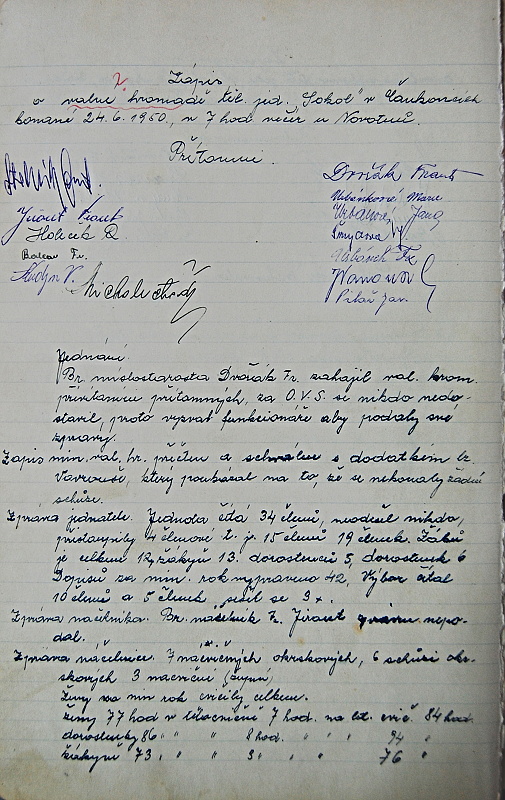 Zápis
o valné hromadě těl. jed. „Sokol" v Čankovicích
konané 24.6.1950, v 7 hod večer u Novotnů.
Přítomni.
Dvořák Frant
Jiraut Frant
Urbánková Marie
Holeček
Urbanová Jana
Balcar Fr.
Vavrouš
Pilař Jan.
Jednání.
Br. místostarosta Dvořák Fr. zahájil val. hrom.
přivítáním přítomných, za O.V.S. se nikdo nedo-
stavil, proto vyzval funkcionáře aby podaly své
zprávy.
Zápis min. val. hr. přečten a schválen s dodatkem br.
Vavrouše, který poukázal na to, že se nekonaly žádné
schůze.
Zpráva jednatele. Jednota čítá 34 členů, neodešel nikdo,
přistoupily 4 členové t. j. 15 členů 19 členek. Žáků
je celkem 12, žákyň 13. dorostenců 5, dorostenek 6
Dopisů za min. rok vypraveno 42, Výbor čítal
10 členů a 5 členek, sešel se 3 x.
Zpráva náčelníka. Br. náčelník Fr. Jiraut zprávu nepo-
dal.
Zpráva náčelnice. 7 nácvičných okrskových, 6 schůzí okr-
skových 3 nacvičení (župní)
Ženy za min rok cvičily celkem.
ženy 77 hod v tělocvičně 7 hod. na let. cvič. 84 hod.
dorostenky 86 " " 8 hod. " " " 94 "
žákyně 73, " " 3 " " " " 76 "